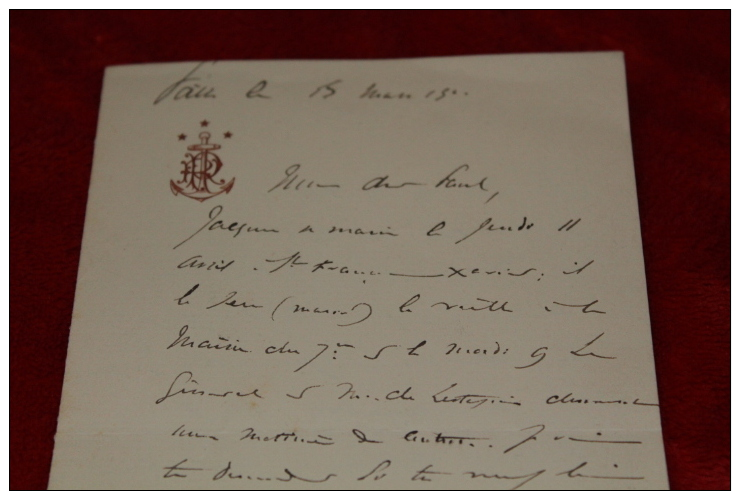 Paris le 15 Mars 190.
Mon cher Paul,
Jacques se marie le Jeudi 11
avril St François Xavier; il
le sera (marié) la veille à la
Mairie du 7me et le mardi 9 Le
Général et Mme de donnent
une matinée de contrat. Je viens
te demander si tu veux bien